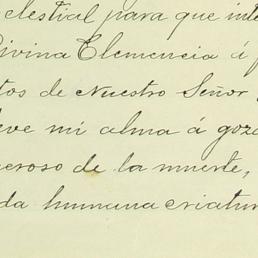 celestial para que inte
Divina Clemencia á p
tos de Nuestro Señor
eve mi alma á goza
eroso de la muerte,
da humana criatur